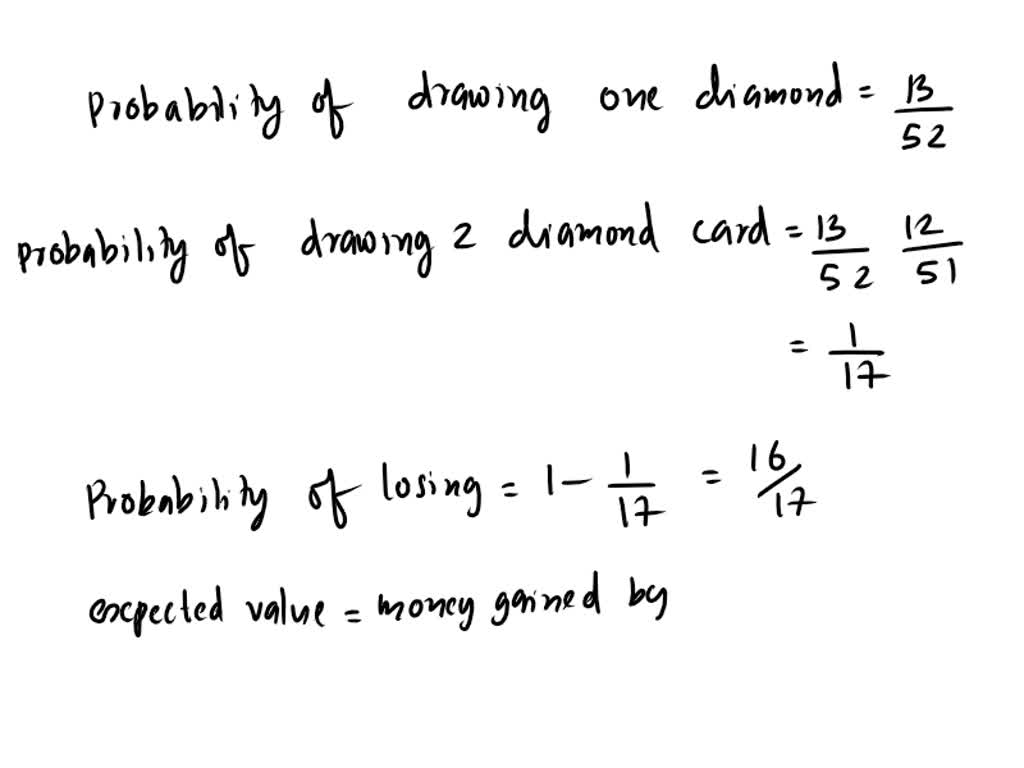 Probability of drawing one diamond = 13/52
probability of drawing 2 diamond card = 13/52 12/51
= 1/17
Probability of losing = 1 - 1/17 = 16/17
expected value = money gained by